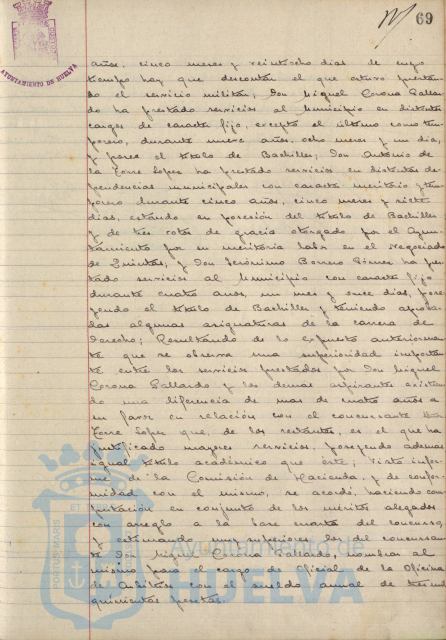 69
AYUNTAMIENTO DE HUELVA
años, cinco meses y veintiocho dias de cuyo
tiempo hay que descontar el que estuvo prestan-
do el servicio militar; Don Miguel Corona Gallar-
do ha prestado servicios al Municipio en distintos
cargos de caracter fijo, excepto el último como tem-
porero, durante nueve años, ocho meses y un dia,
y posee el título de Bachiller; Don Antonio de
la Torre Lopez ha prestado servicios en distintas de-
pendencias municipales con caracter meritorio y tem-
porero durante cinco años, cinco meses y siete
dias, estando en posesión del título de Bachiller
y de tres votos de gracia otorgado por el Ayun-
tamiento por su meritoria labor en el Negociado
de Quintas; y Don Jerónimo Borrero Gómez ha pres-
tado servicios al Municipio con caracter fijo
durante cuatro años, un mes y once dias, pose-
yendo el título de Bachiller y teniendo aproba-
das algunas asignaturas de la carrera de
Derecho; Resultando de lo expuesto anteriormen-
te que se observa una superioridad importan-
te entre los servicios prestados por Don Miguel
Corona Gallardo y los demas aspirantes existien-
do una diferencia de mas de cuatro años a
su favor en relación con el concursante
Torre Lopez que, de los restantes, es el que ha
justificado mayores servicios, poseyendo ademas
igual título académico que éste; Visto infor-
me de la Comisión de Hacienda, y de confor-
midad con el mismo, se acordó, haciendo com-
putación en conjunto de los méritos alegados
con arreglo a la base cuarta del concurso,
y estimando muy superiores los del concursan-
te Don Miguel Corona Gallardo, nombrar al
mismo para el cargo de Oficial de la Oficina
de Arbitrios con el sueldo anual de tres mil
quinientas pesetas.
PORTUS MARIS ET
Ayuntamiento de
HUELVA